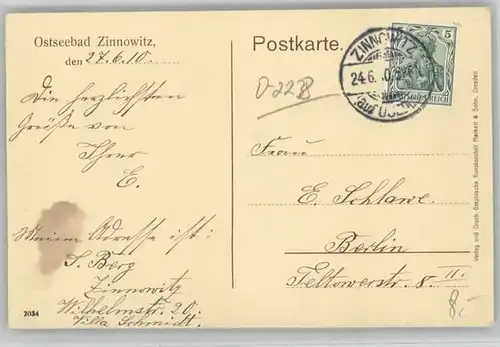 Ostseebad Zinnowitz,
den 27.6.10.
Die herzlichsten
Grüße von
Ihrer
E.
Meine Adresse ist:
S. Berg
Zinnowitz
Wilhelmstr. 20.
Villa Schmidt.
2034
Postkarte.
ZINNOWITZ
24.6.
5
REICH
Frau
E. Schlawe.
Berlin
Teltowerstr. 8 II.
8,-
Verlag und Druck Graphische Kunstanstalt